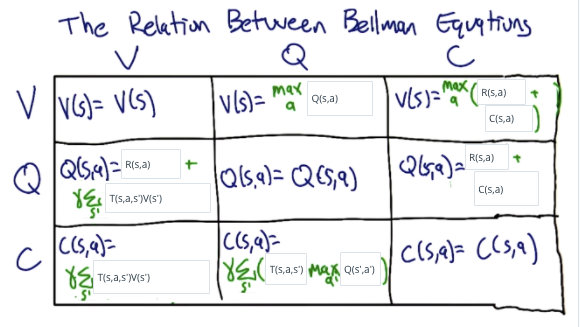 The Relation Between Bellman Equations
V Q C
V V(s)= V(s) V(s)= max a Q(s,a) V(s)= max a ( R(s,a) + C(s,a) )
Q Q(s,a)= R(s,a) + γ Σ s' T(s,a,s')V(s') Q(s,a)= Q(s,a) Q(s,a)= R(s,a) + C(s,a)
C C(s,a)= γ Σ s' T(s,a,s')V(s') C(s,a)= γ Σ s' ( T(s,a,s') max a' Q(s',a') ) C(s,a)= C(s,a)